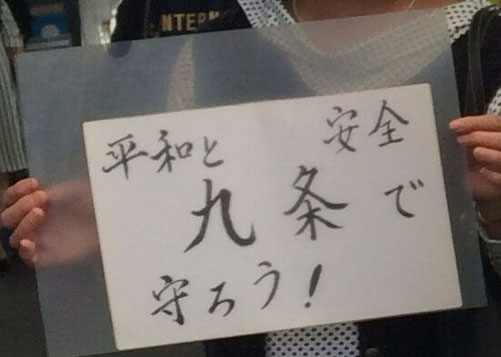 NTERN
平和と 安全
九条で
守ろう!